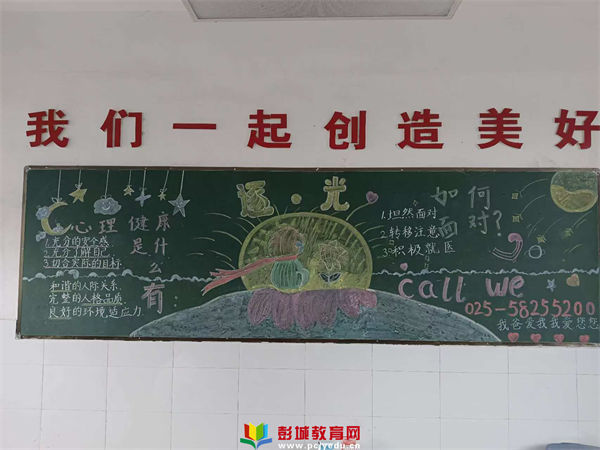 我们一起创造美好
逐·光
心理健康
是什
么
有
1.充分的安全感
2.充分了解自己
3.切合实际的目标
和谐的人际关系
完整的人格品质
良好的环境适应力
如何
面对?
1.坦然面对
2.转移注意
3.积极就医
call we
025-58255200
我爸爱我我爱您您
彭城教育网